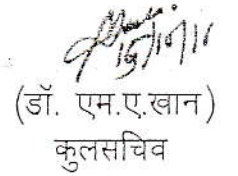 (डॉ. एम.ए.खान)
कुलसचिव